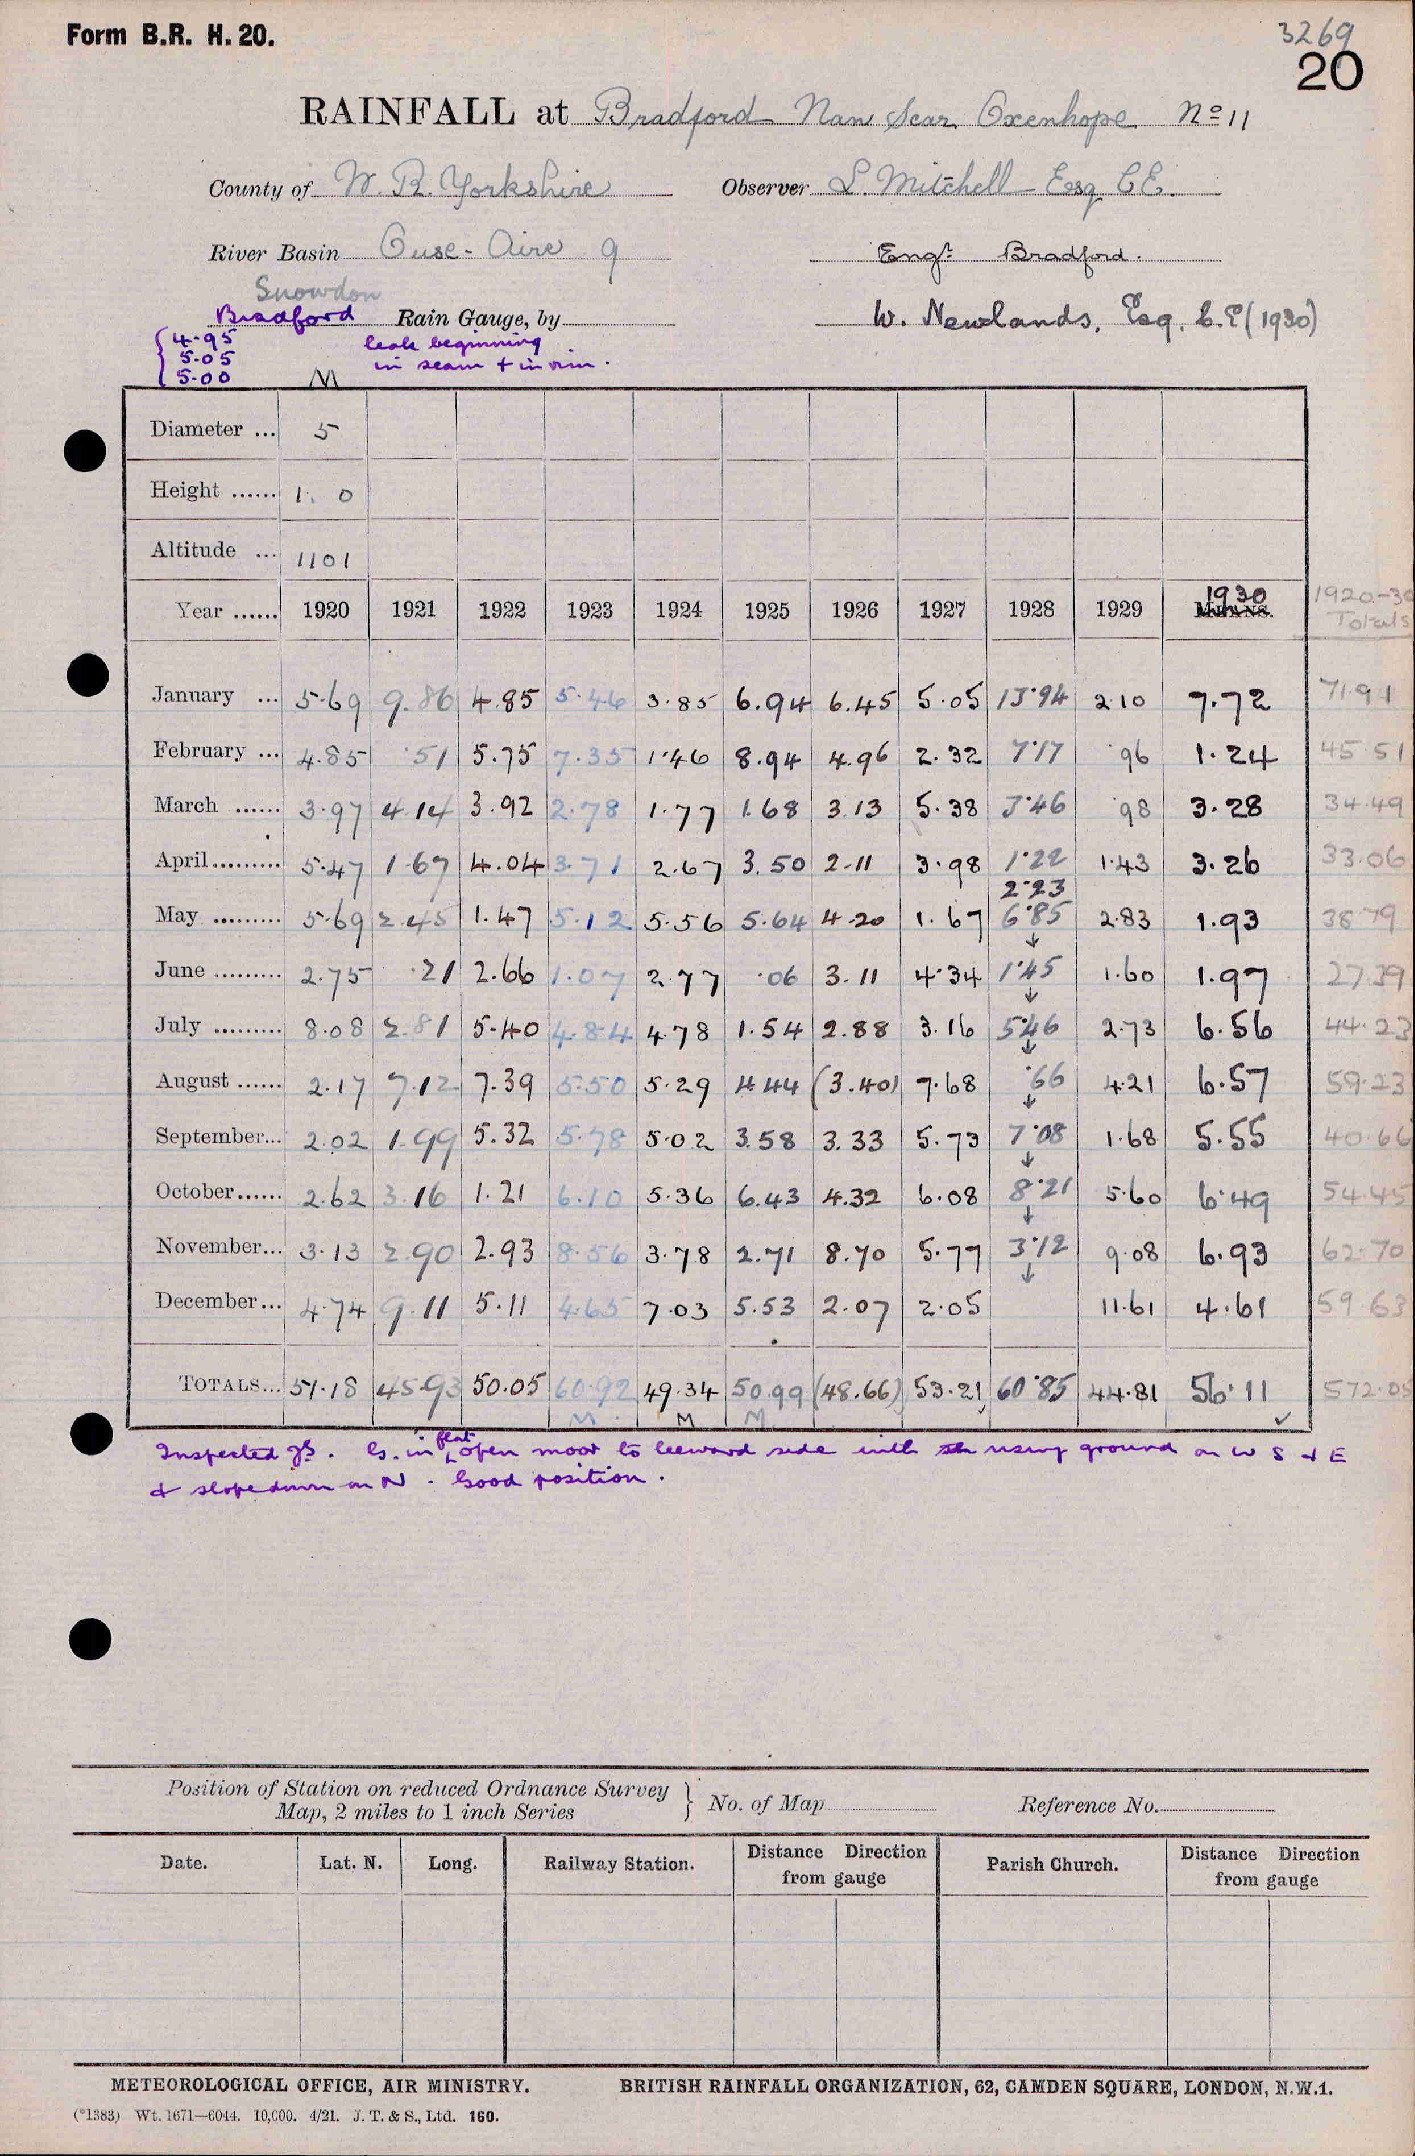 Form B.R. H. 20.
3269
20
RAINFALL at Bradford Nan Scar Oxenhope No 11
County of W. R. Yorkshire Observer L. Mitchell Esq C.E.
River Basin Ouse - Aire 9 Engr. Bradford.
Snowdon
Bradford Rain Gauge, by W. Newlands, Esq, C.E (1930)
4.95 leak beginning
5.05 in seam + in rim.
5.00 M
Diameter ... 5
Height ...... 1. 0
Altitude ... 1101
Year ...... 1920 1921 1922 1923 1924 1925 1926 1927 1928 1929 1930 MEANS. 1920-30 Totals
January ... 5.69 9.86 4.85 5.46 3.85 6.94 6.45 5.05 13.94 2.10 7.72 71.91
February ... 4.85 .51 5.75 7.35 1.46 8.94 4.96 2.32 7.17 .96 1.24 45.51
March ...... 3.97 4.14 3.92 2.78 1.77 1.68 3.13 5.38 3.46 .98 3.28 34.49
April......... 5.47 1.67 4.04 3.71 2.67 3.50 2.11 3.98 1.22 1.43 3.26 33.06
2.23
May ......... 5.69 2.45 1.47 5.12 5.56 5.64 4.20 1.67 6.85 2.83 1.93 38.79
June ......... 2.75 .21 2.66 1.07 2.77 .06 3.11 4.34 1.45 1.60 1.97 27.39
July ......... 8.08 2.81 5.40 4.84 4.78 1.54 2.88 3.16 5.46 2.73 6.56 44.23
August ...... 2.17 7.12 7.39 5.50 5.29 4.44 (3.40) 7.68 .66 4.21 6.57 59.23
September... 2.02 1.99 5.32 5.78 5.02 3.58 3.33 5.73 7.08 1.68 5.55 40.66
October...... 2.62 3.16 1.21 6.10 5.36 6.43 4.32 6.08 8.21 5.60 6.49 54.45
November... 3.13 2.90 2.93 8.56 3.78 2.71 8.70 5.77 3.12 9.08 6.93 62.70
December... 4.74 9.11 5.11 4.65 7.03 5.53 2.07 2.05 11.61 4.61 59.63
TOTALS... 51.18 45.93 50.05 60.92 49.34 50.99 (48.66) 53.21 60.85 44.81 56.11 572.05
M M M
Inspected G. is in flat open moor to leeward side with rising ground on W S + E
+ slope down on N. Good position.
Position of Station on reduced Ordnance Survey
Map, 2 miles to 1 inch Series } No. of Map Reference No.
Date. Lat. N. Long. Railway Station. Distance Direction from gauge Parish Church. Distance Direction from gauge
METEOROLOGICAL OFFICE, AIR MINISTRY. BRITISH RAINFALL ORGANIZATION, 62, CAMDEN SQUARE, LONDON, N.W.1.
(*1383) Wt. 1671—6044. 10,000. 4/21. J. T. & S., Ltd. 160.